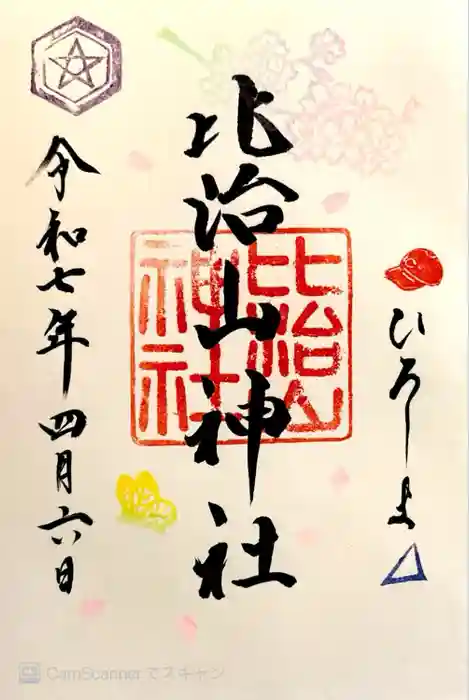 ひろしま
比治山神社
比治山
神社
令和七年四月六日
CamScannerでスキャン